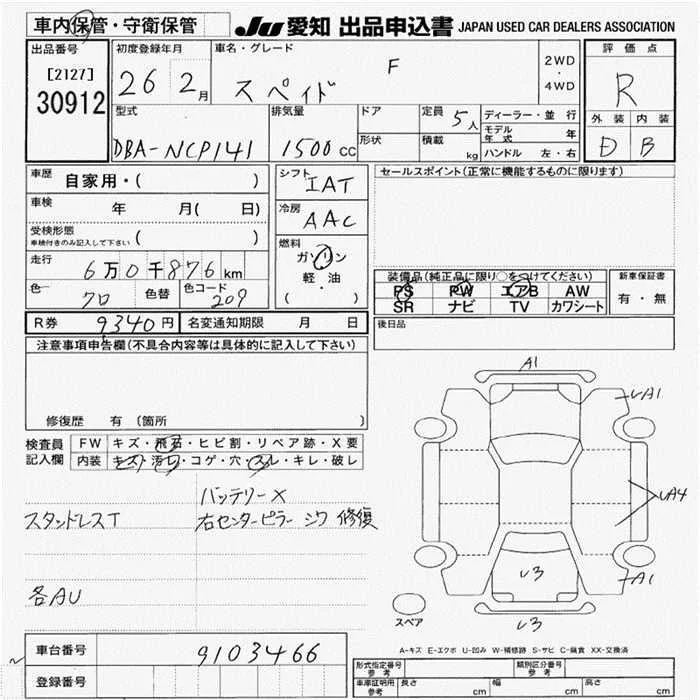 車内保管・守衛保管
JU 愛知 出品申込書 JAPAN USED CAR DEALERS ASSOCIATION
出品番号
[2127]
30912
初度登録年月
26 2月
車名・グレード
スペイド F
2WD
・
4WD
評価点
R
外装 内装
D B
型式
DBA-NCP141
排気量
1500cc
ドア
形状
定員
5人
積載
kg
ディーラー・並行
モデル年式 年
ハンドル 左・右
車歴 自家用・( )
車検 年 月( 日)
受検形態
車検付きのみ記入して下さい ( )
走行 6万0千876km
色 クロ 色替 色コード 209
シフト
IAT
冷房
AAC
燃料
ガソリン
軽・油
( )
セールスポイント(正常に機能するものに限ります)
装備品(純正品に限り○をつけてください)
PS PW エアB AW
SR ナビ TV カワシート
新車保証書
有・無
R券 9340円 名変通知期限 月 日
後日品
注意事項申告欄(不具合内容等は具体的に記入して下さい)
修復歴 有 (箇所 )
検査員
記入欄
FW キズ・飛石・ヒビ割・リペア跡・X要
内装 キズ・汚レ・コゲ・穴・スレ・キレ・破レ
バッテリーX
スタンドレスT 右センターピラー シワ 修復
各AU
A1
UA1
UA4
A1
U3
U3
スペア
A-キズ E-エクボ U-凹み W-補修跡 S-サビ C-腐食 XX-交換済
車台番号 9103466
登録番号
型式指定番号
参考
類別区分番号
参考
車庫証明用
参考
長さ cm 幅 cm 高さ cm